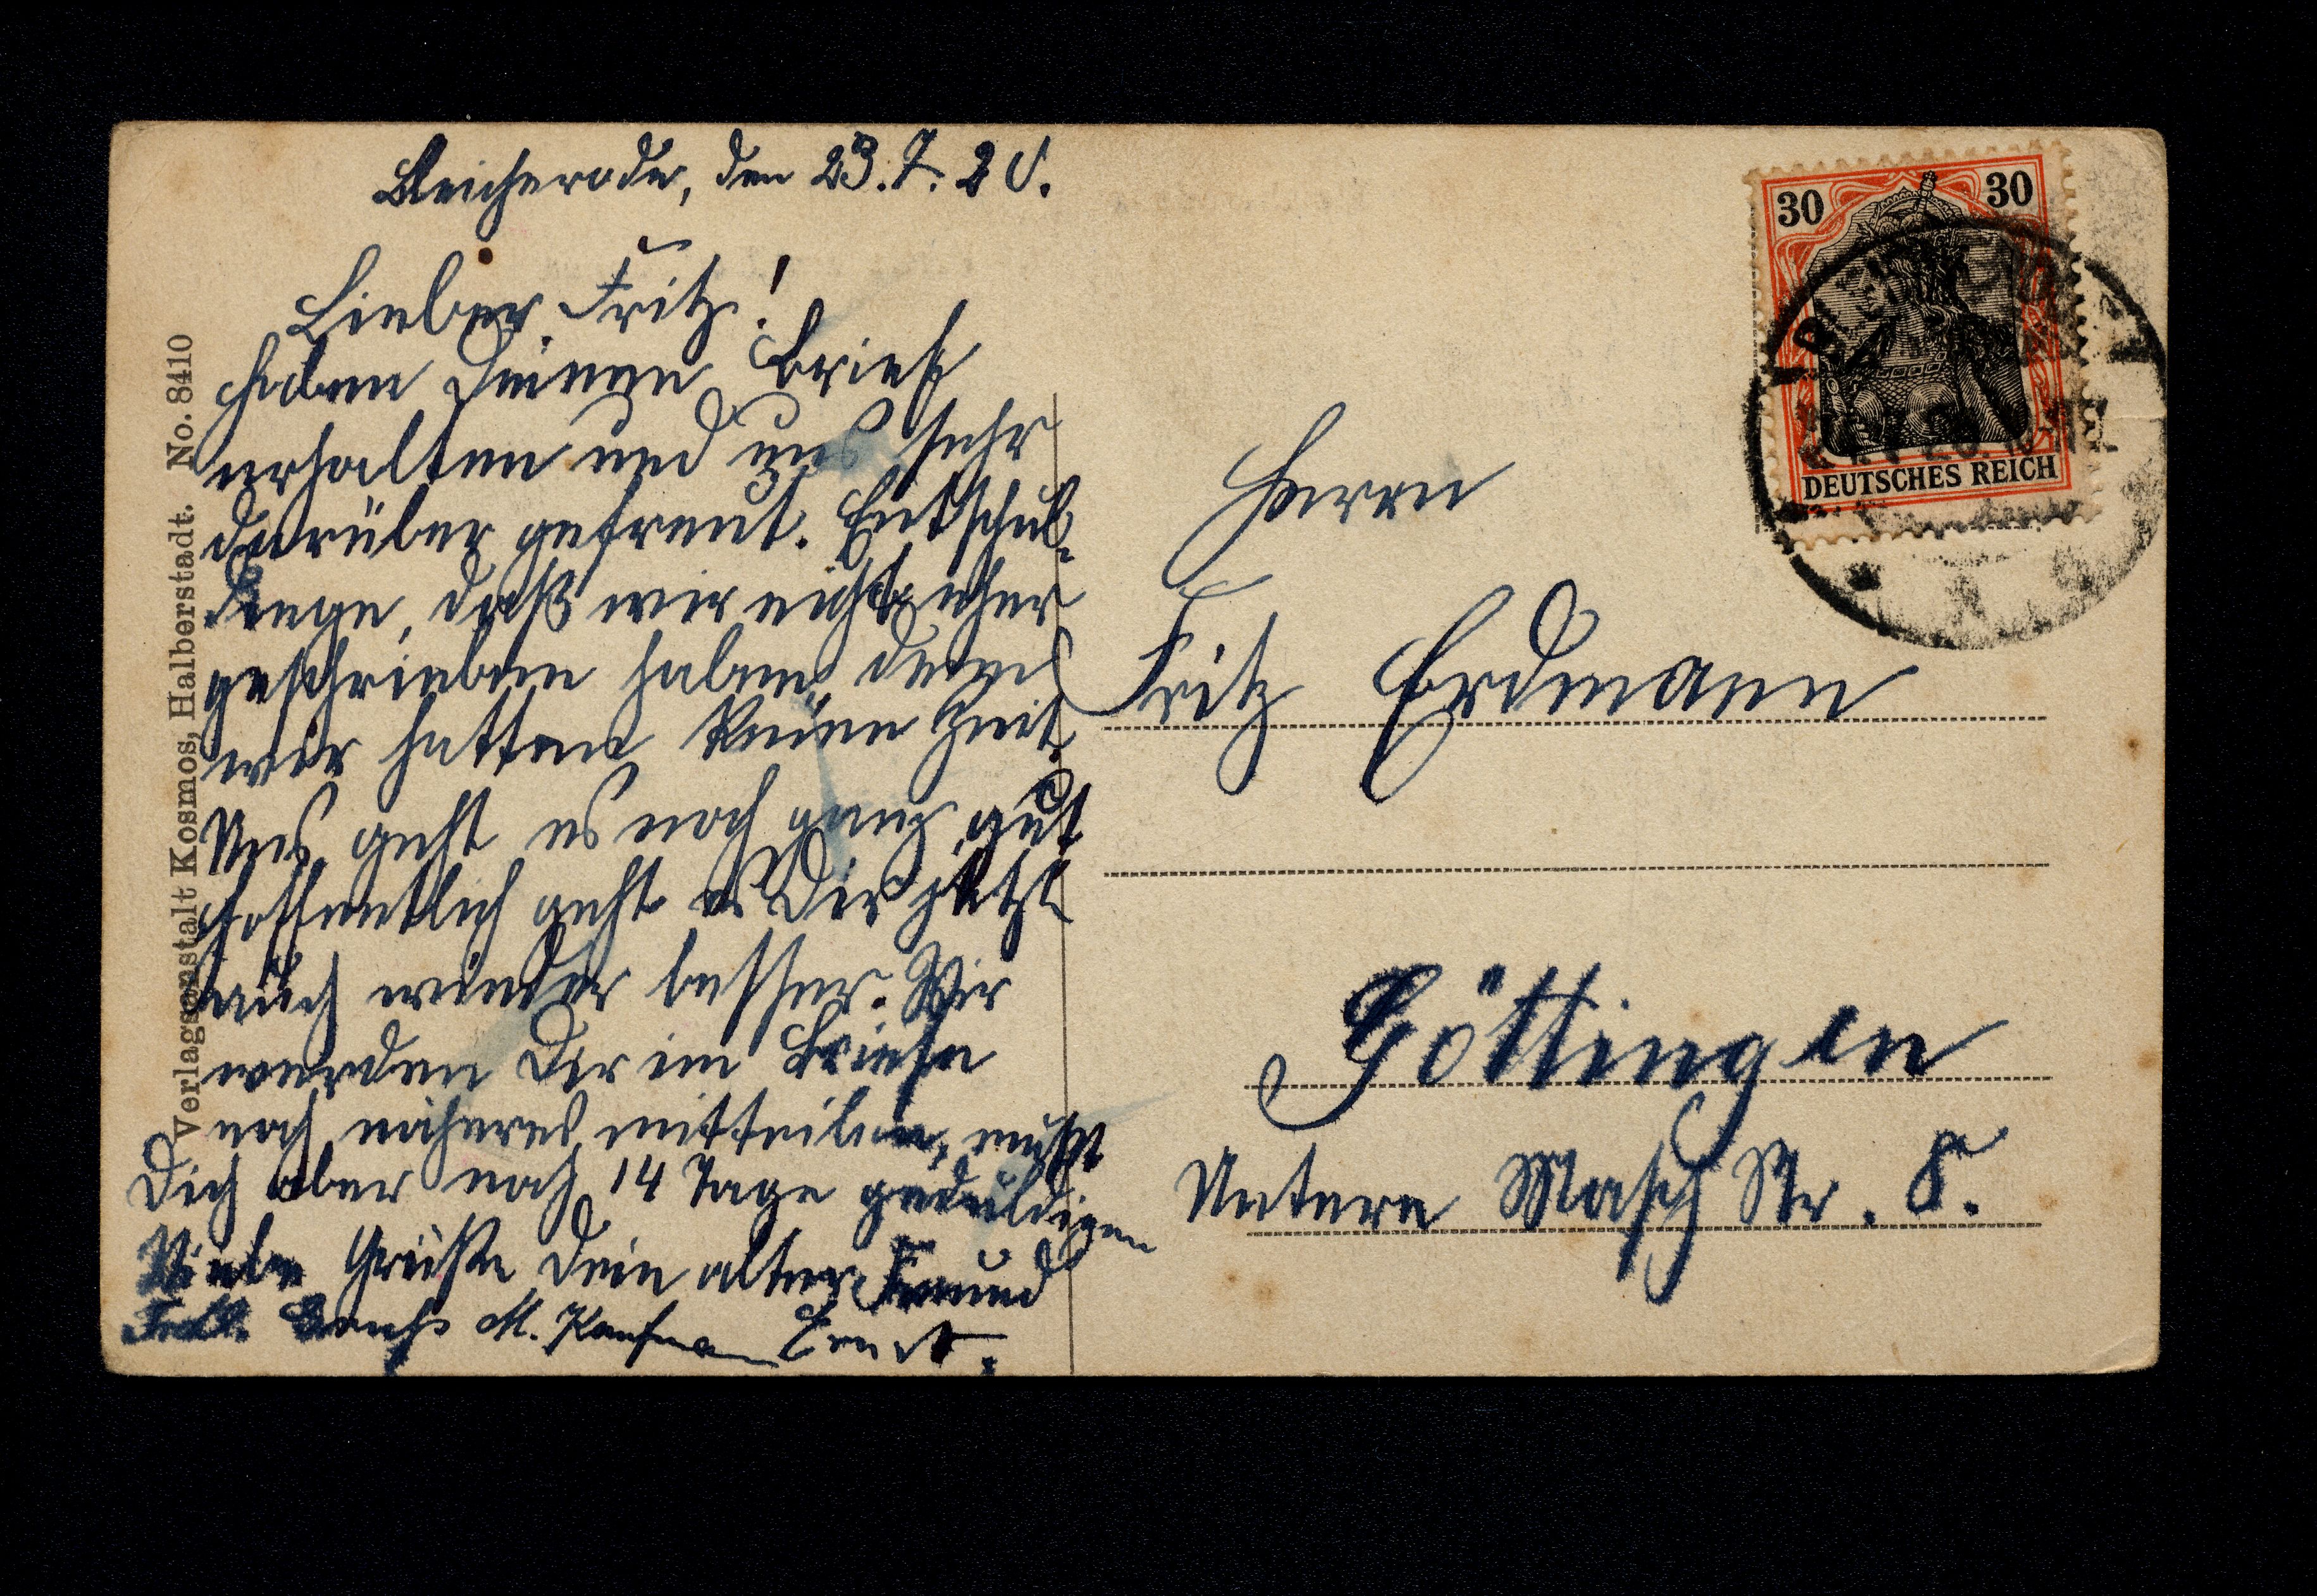 Bleicherode, den 23.7.20.
Lieber Fritz!
Haben Deinen Brief
erhalten und uns sehr
darüber gefreut. Entschul-
dige, daß wir nicht eher
geschrieben haben, denn
wir hatten keine Zeit.
Uns geht es noch ganz gut
hoffentlich geht es Dir jetzt
auch wieder besser. Wir
werden Dir im Briefe
noch näheres mitteilen, mußt
Dich aber noch 14 Tage geduldigen
Viele Grüße Dein alter Freund
M. Kaufman Ernst.
Verlagsanstalt Kosmos, Halberstadt. No. 8410
30 30
DEUTSCHES REICH
Herrn
Fritz Erdmann
Göttingen
Untere Masch Str. 8.